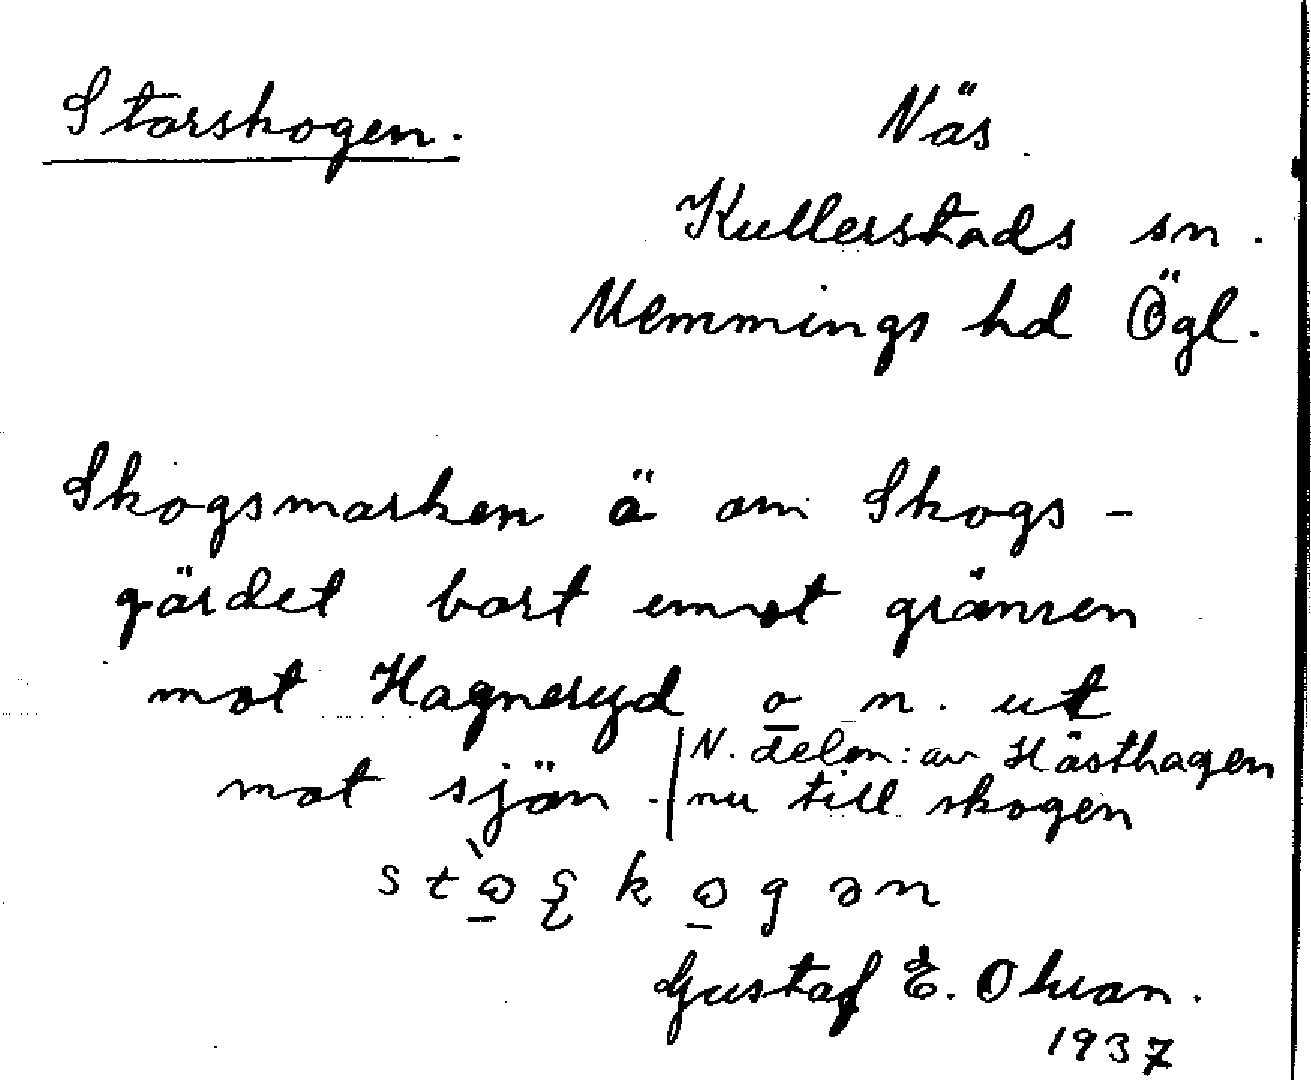 Storskogen.
Näs
Kullerstads sn.
Memmings hd Ögl.
Skogsmarken ö om Skogs-
gärdet bort emot gränsen
mot Hagneryd o n. ut
mot sjön.
N. delen av Hästhagen
nu till skogen
Gustaf E.
1937